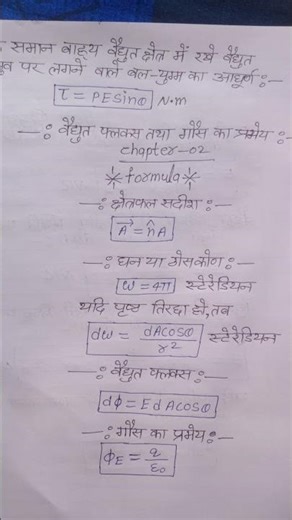 समान बाह्य वैद्युत क्षेत्र में रखे वैद्युत
पर लगने वाले बल-युग्म का आघूर्ण :-
τ = PEsinθ N.m
—: वैद्युत फ्लक्स तथा गौस का प्रमेय :—
chapter-02
formula
—: क्षेत्रफल सदिश :—
A⃗ = n̂A
—: घन या ठोसकोण :—
W = 4π स्टेरेडियन
यदि पृष्ठ तिरछा हो, तब
dω = dAcosθ / r² स्टेरेडियन
—: वैद्युत फ्लक्स :—
dϕ = E dAcosθ
—: गौस का प्रमेय :—
ϕE = q / ε₀